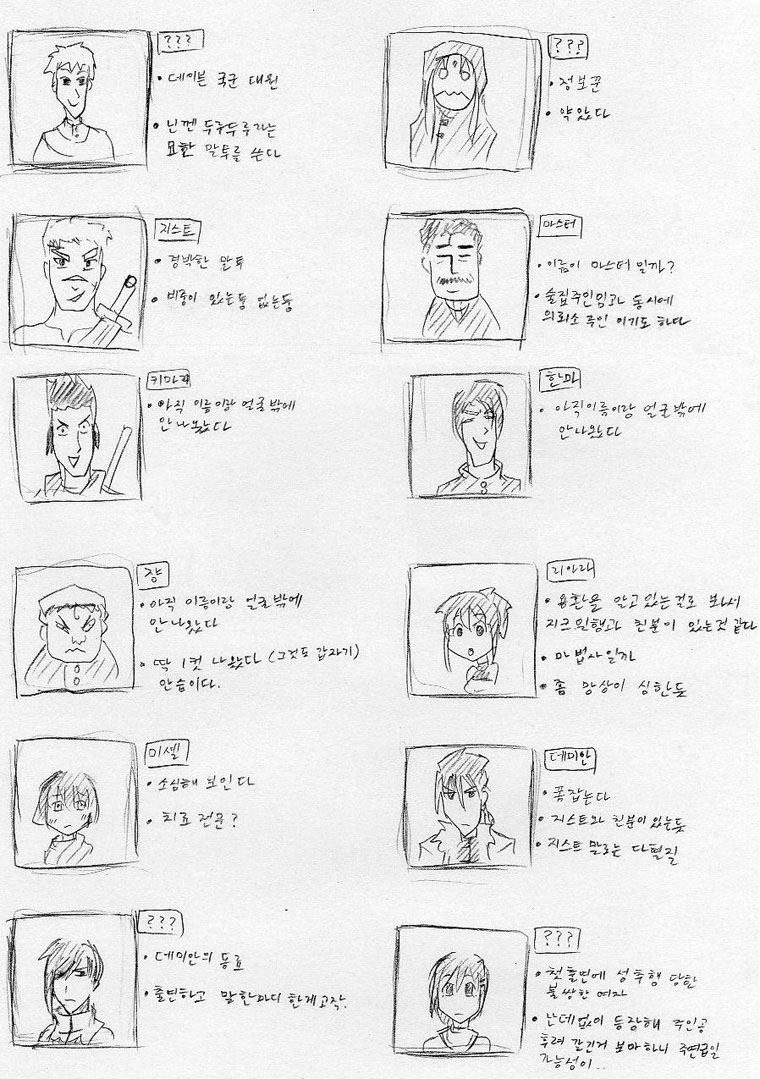 ???
• 데이븐 국군 대원
• 닌껜 두루두루라는
묘한 말투를 쓴다
???
• 정보꾼
• 약았다
지스트
• 경박한 말투
• 비중이 있는듯 없는듯
마스터
• 이름이 마스터 일까?
• 술집주인임과 동시에
의뢰소 주인 이기도 하다
키마라
• 아직 이름이랑 얼굴밖에
안나왔다
한마
• 아직이름이랑 얼굴밖에
안나왔다
쟝
• 아직 이름이랑 얼굴밖에
안나왔다
• 딱 1컷 나왔다 (그것도 갑자기)
안습이다.
리아라
• 용환을 알고있는걸로 봐서
지크일행과 친분이 있는것 같다
• 마법사일까
• 좀 망상이 심한듯
미셸
• 소심해 보인다
• 치료 전문?
데미안
• 폼잡는다
• 지스트와 친분이 있는듯
• 지스트 말로는 다혈질
???
• 데미안의 동료
• 출연하고 말한마디 한게고작.
???
• 첫출연에 성추행 당한
불쌍한 여자
• 난데없이 등장해 주인공
후려 갈긴거 보아하니 주연급일
가능성이..